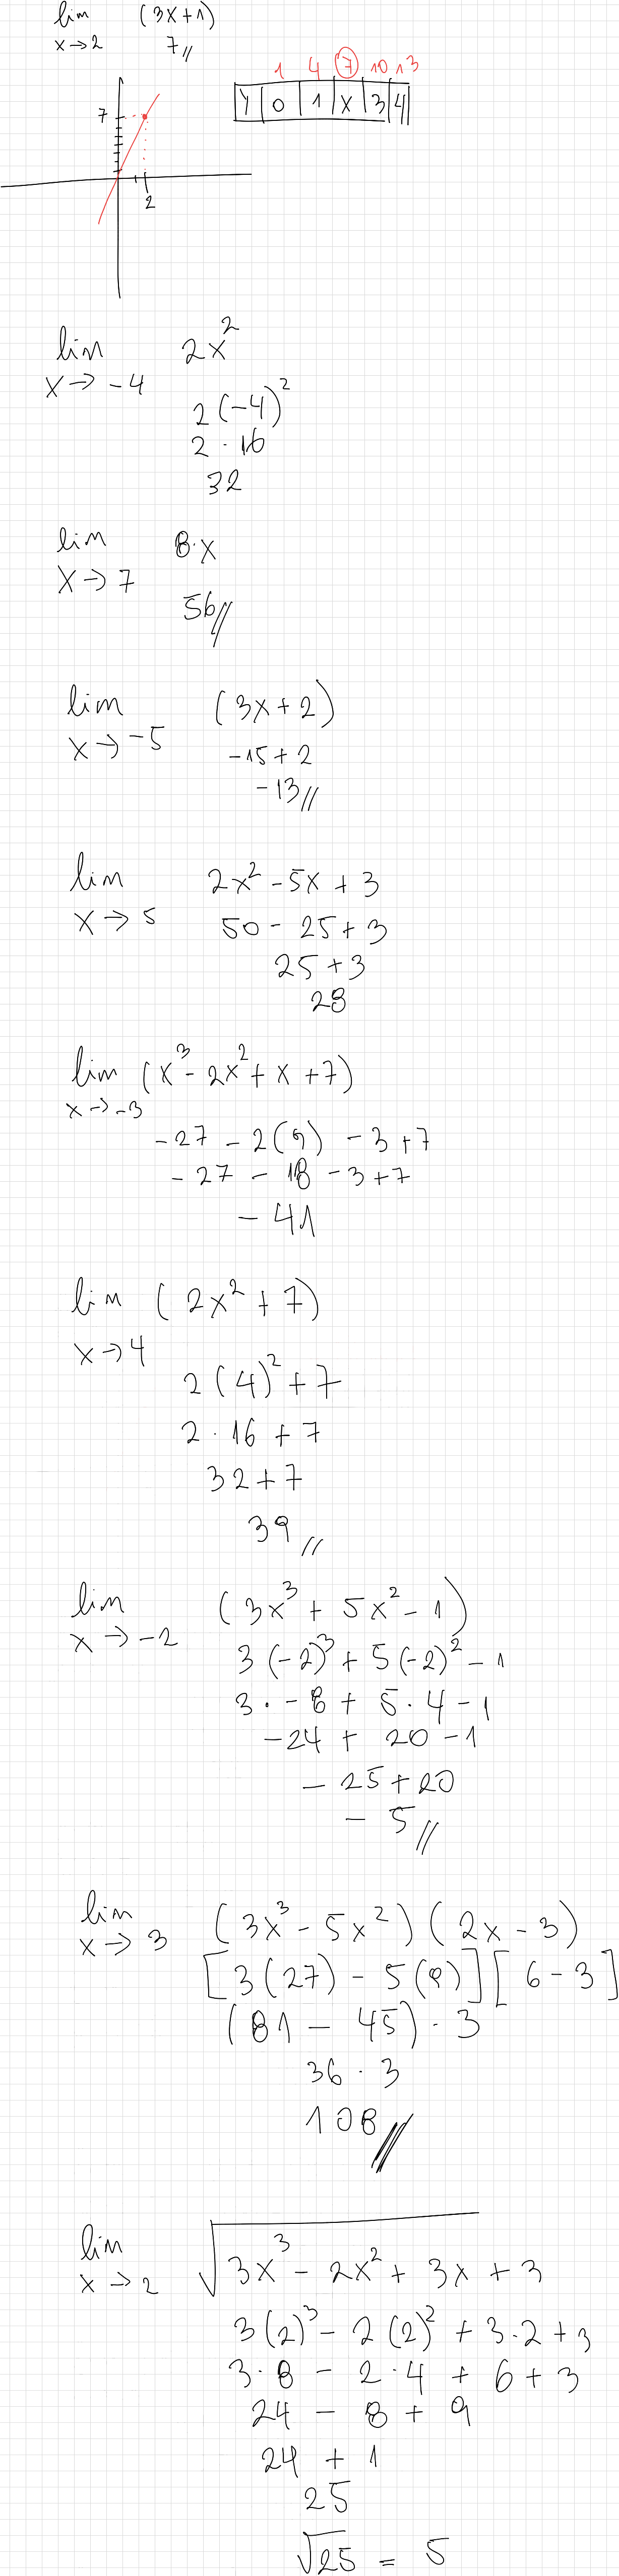 lim (3x+1)
x→2 7//
1 4 7 10 13
Y 0 1 x 3 4
7
2
lim 2x²
x→-4
2(-4)²
2·16
32
lim 8·x
x→7
56//
lim (3x+2)
x→-5
-15+2
-13//
lim 2x²-5x+3
x→5
50-25+3
25+3
28
lim (x³-2x²+x+7)
x→-3
-27-2(9)-3+7
-27-18-3+7
-41
lim (2x²+7)
x→4
2(4)²+7
2·16+7
32+7
39//
lim (3x³+5x²-1)
x→-2
3(-2)³+5(-2)²-1
3·-8+5·4-1
-24+20-1
-25+20
-5//
lim (3x³-5x²)(2x-3)
x→3
[3(27)-5(9)][6-3]
(81-45)·3
36·3
108//
lim √3x³-2x²+3x+3
x→2
3(2)³-2(2)²+3·2+3
3·8-2·4+6+3
24-8+9
24+1
25
√25=5